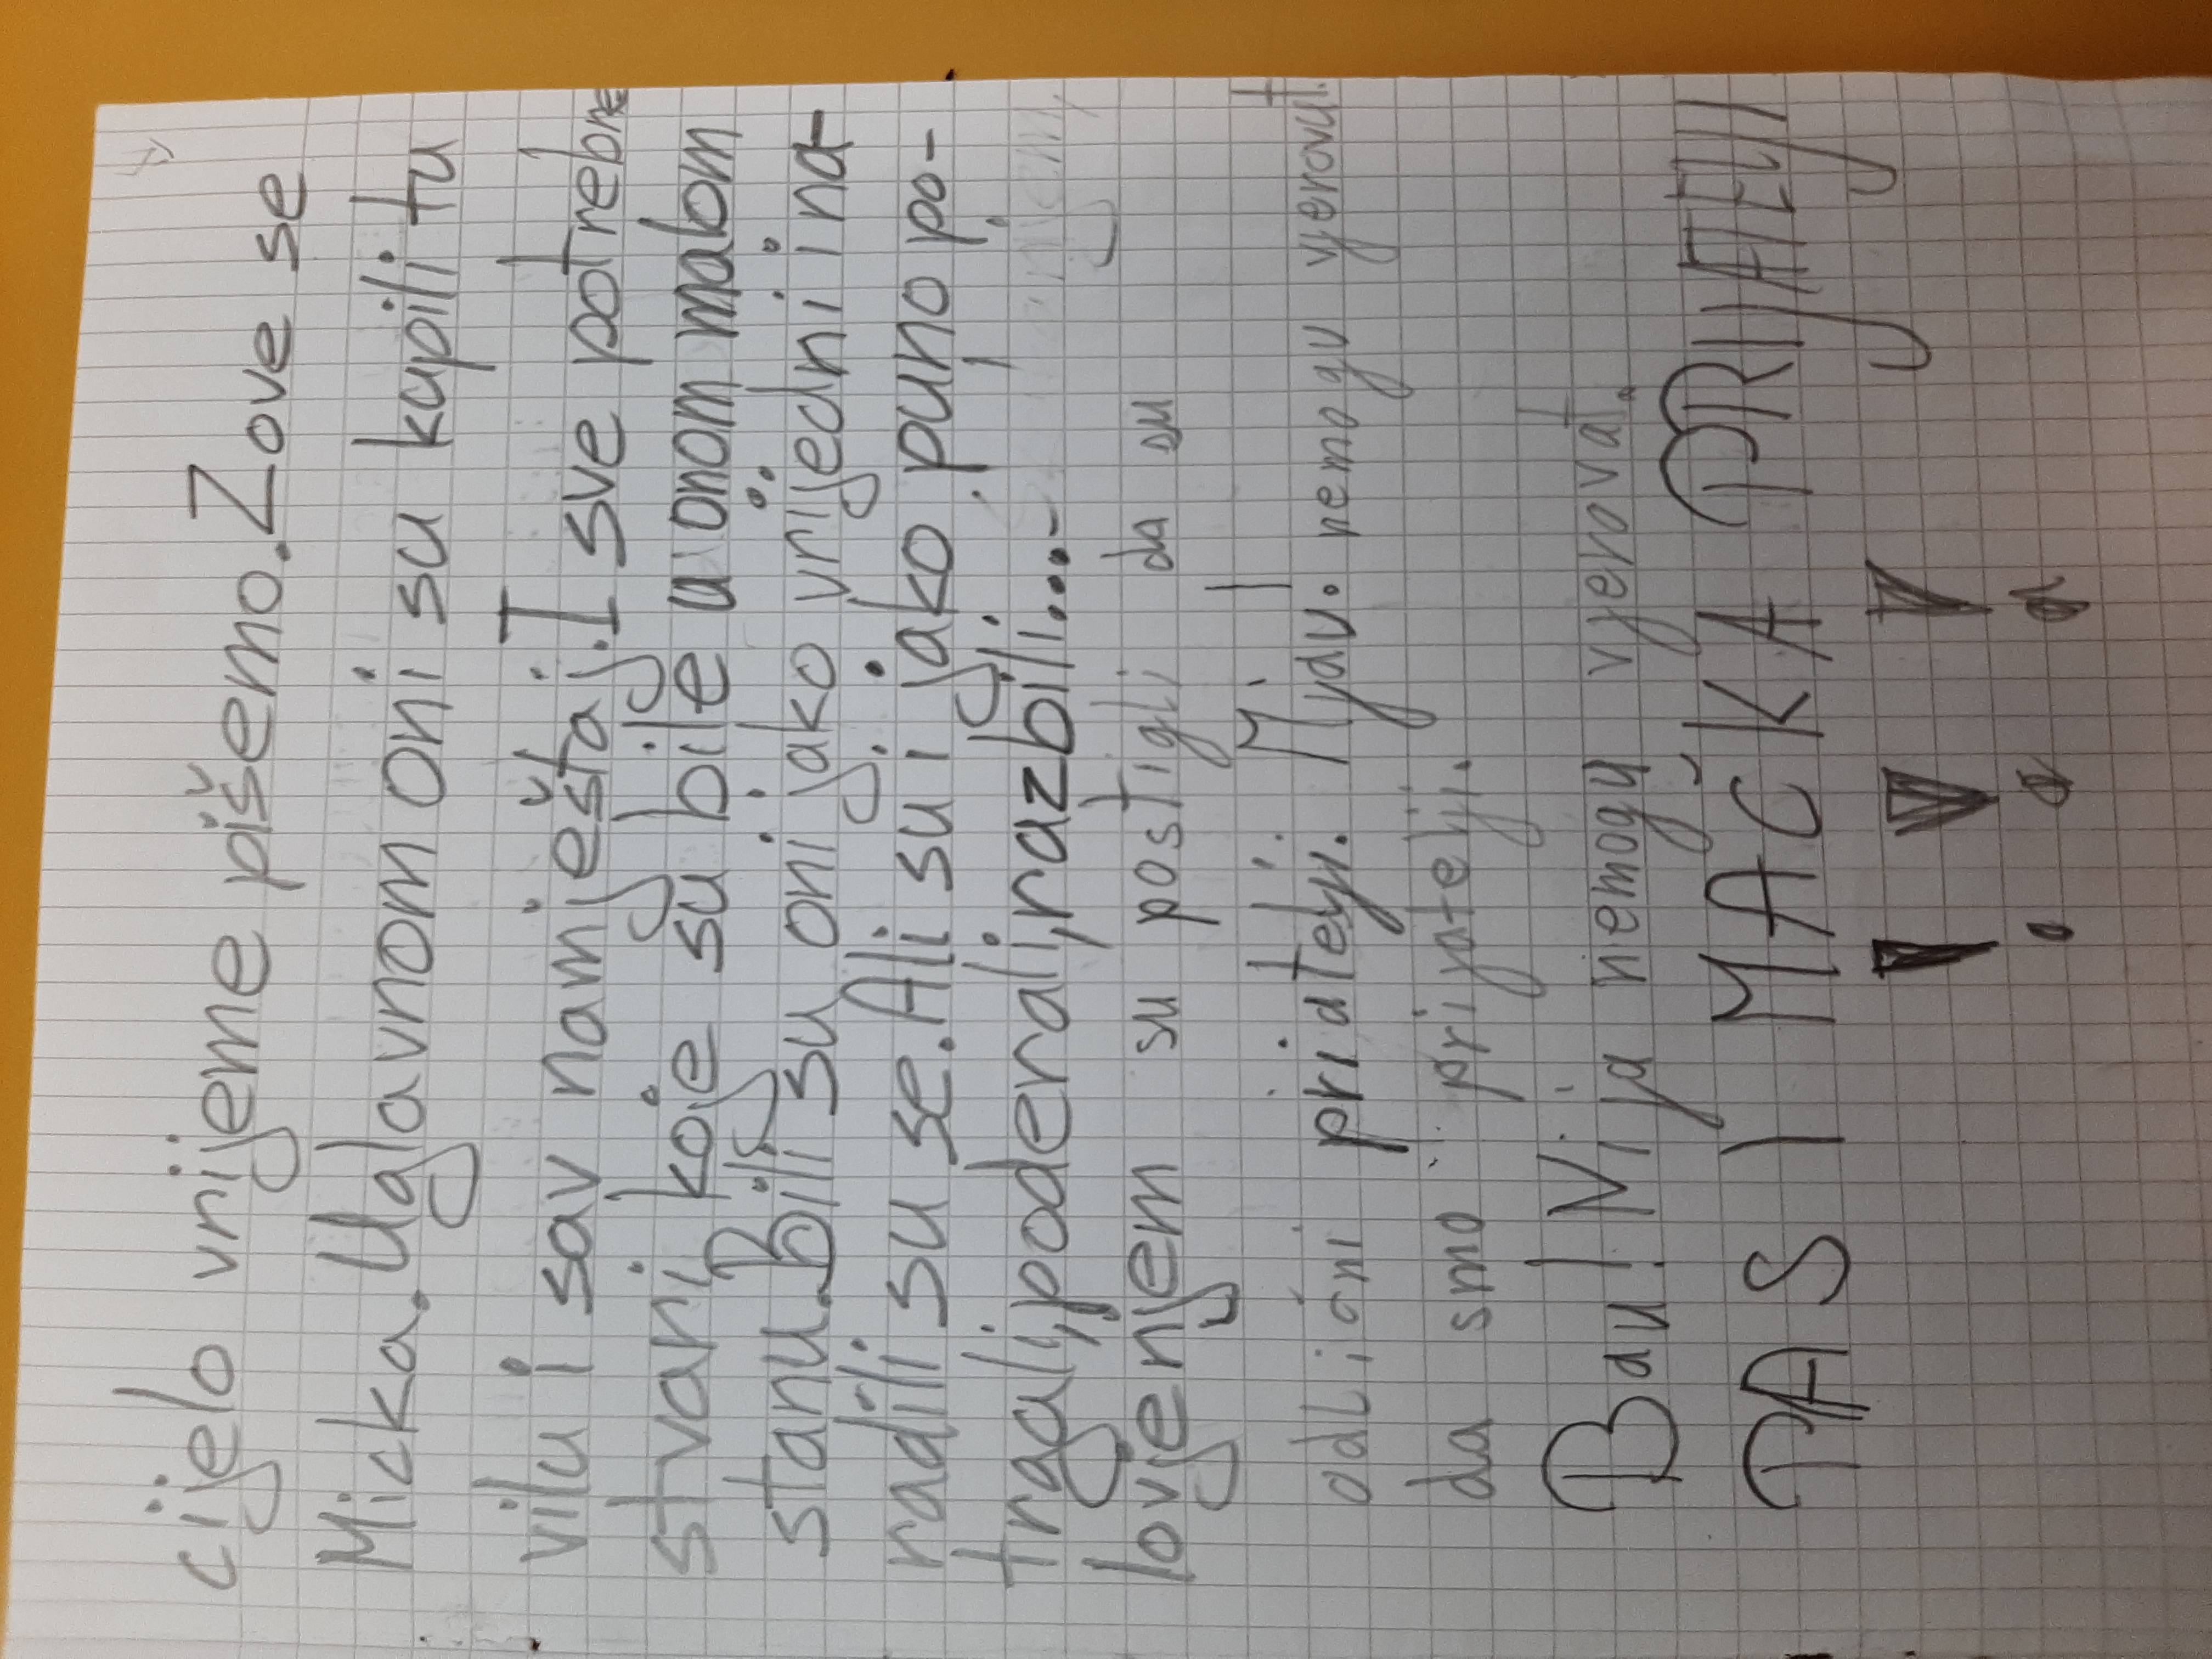 cijelo vrijeme pišemo. Zove se
Micka. Uglavnom oni su kupili tu
vilu i sav namještaj. I sve potrebne
stvari koje su bile u onom malom
stanu. Bili su oni jako vrijedni i na-
radili su se. Ali su i jako puno po-
trgali, poderali, razbili...-
lovjenjem su postigli da su
odlični priatelji. Mjau. nemogu vjerovat
da smo prijatelji.
Bau! Nija nemogu vjerovat.
PAS I MAČKA PRIJATELJI
!!!